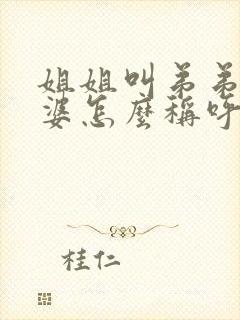 姐姐叫弟弟
婆怎麼稱呼
桂仁